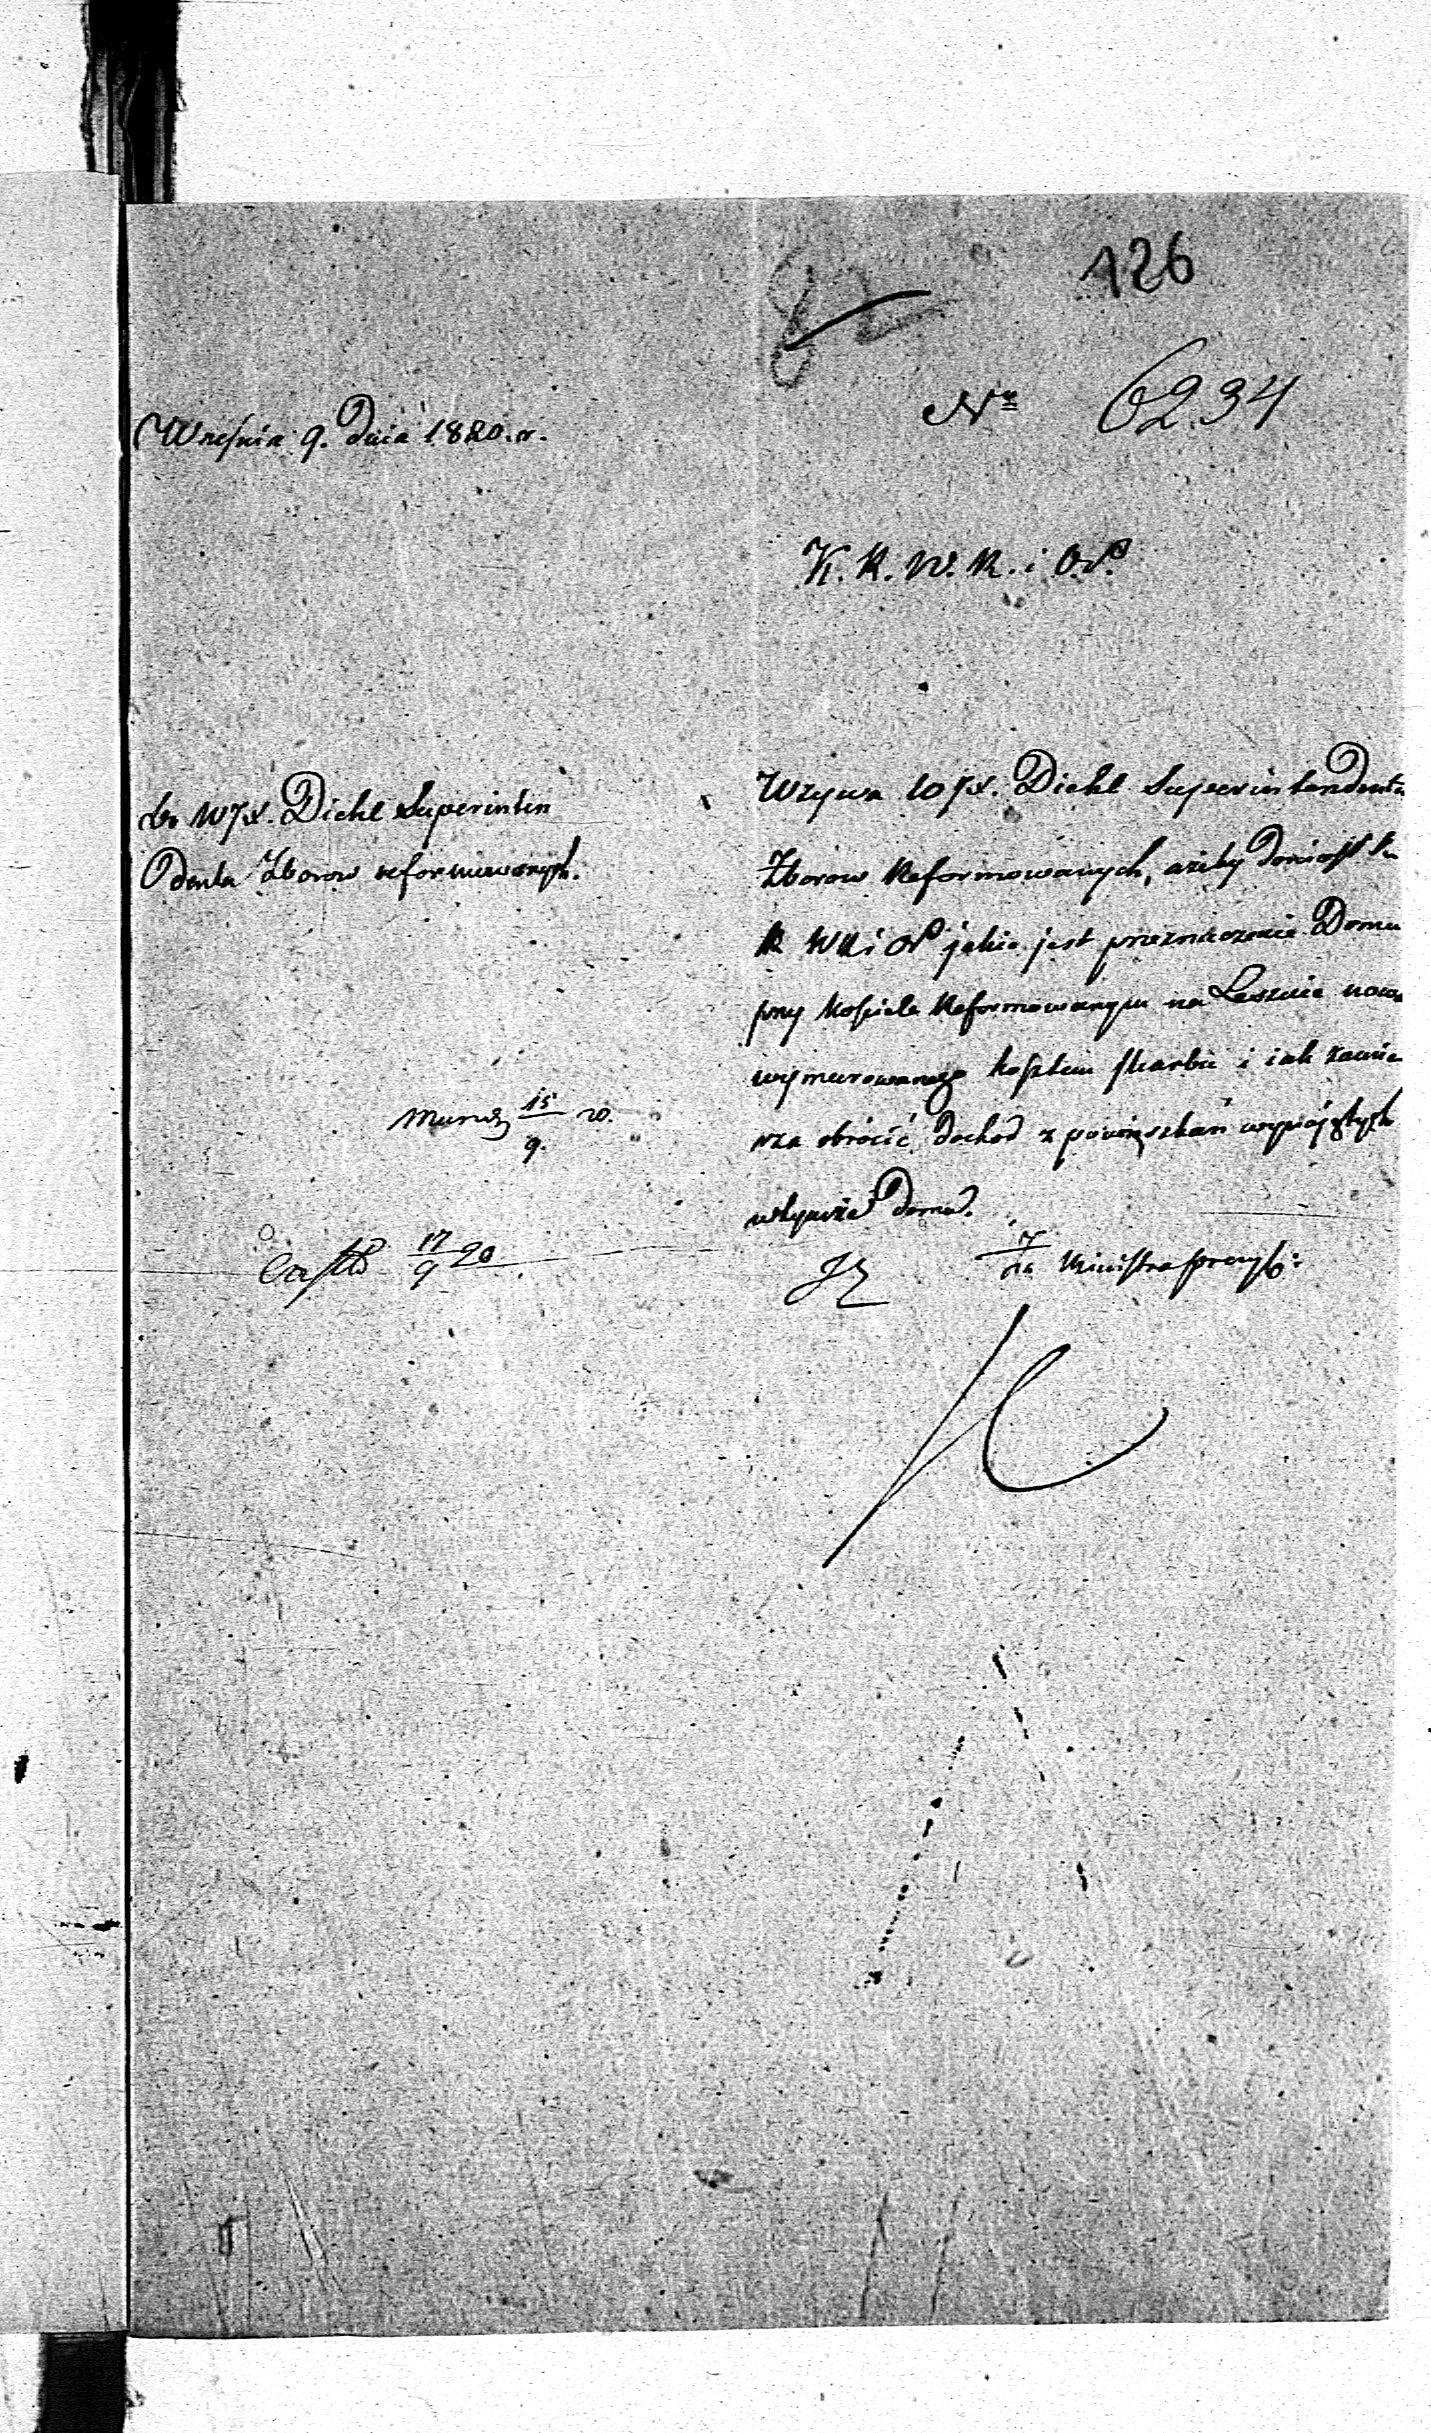 126
82
Nro 6234
Września 9. Dnia 1820. r.
K. R. W. R. i O. P.
do WJX. Diehl Superinten
denta Zborow reformowanych.
Wzywa WJX. Diehl Superintendenta
Zborow Reformowanych, ażeby doniosł K.
R WR i OP jakie jest przeznaczenie Domu
przy Kościele Reformowanym na Lesznie nowo
wymurowanego kosztem skarbu i iak zamie
rza obrócić dochod z pomieszkań wynajętych
w tymże Domu.
15/9. 20.
17/9 20
Ministra prezyd: